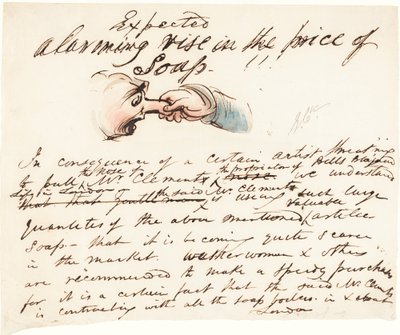 Expected
alarming rise in the price of
Soap. !!!
In consequence of a certain artist threat'ning
the Nose of the proprietor of
to pull Mr Clements Bells
Life in London we understand
that the said Mr Clements is using such large
quantities of the above mentioned valuable article
Soap - that it is becoming quite scarce
in the market. washerwomen & others
are recommended to make a speedy purchase
for it is a certain fact that the said Mr Clements
is contracting with all the soap in & about
London